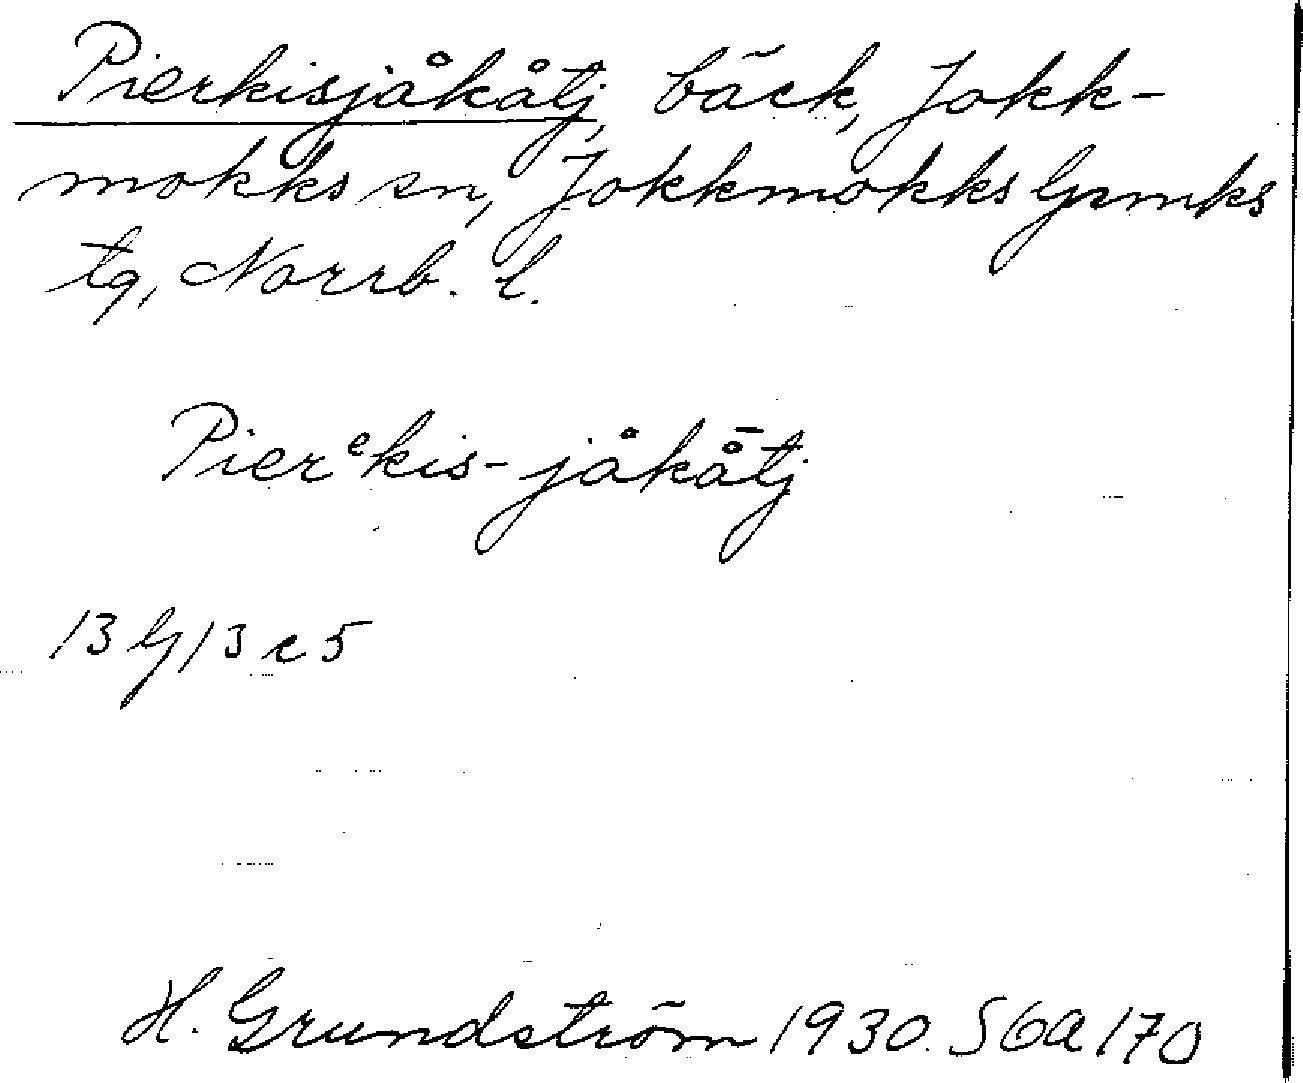 Pierkisjåkåtj, bäck, Jokk-
mokks sn, Jokkmokks lpmks
tg, Norrb. l.
Pierᵉkis-jåkå̄tj
13 G/3 c 5
H. Grundström 1930. S6a170